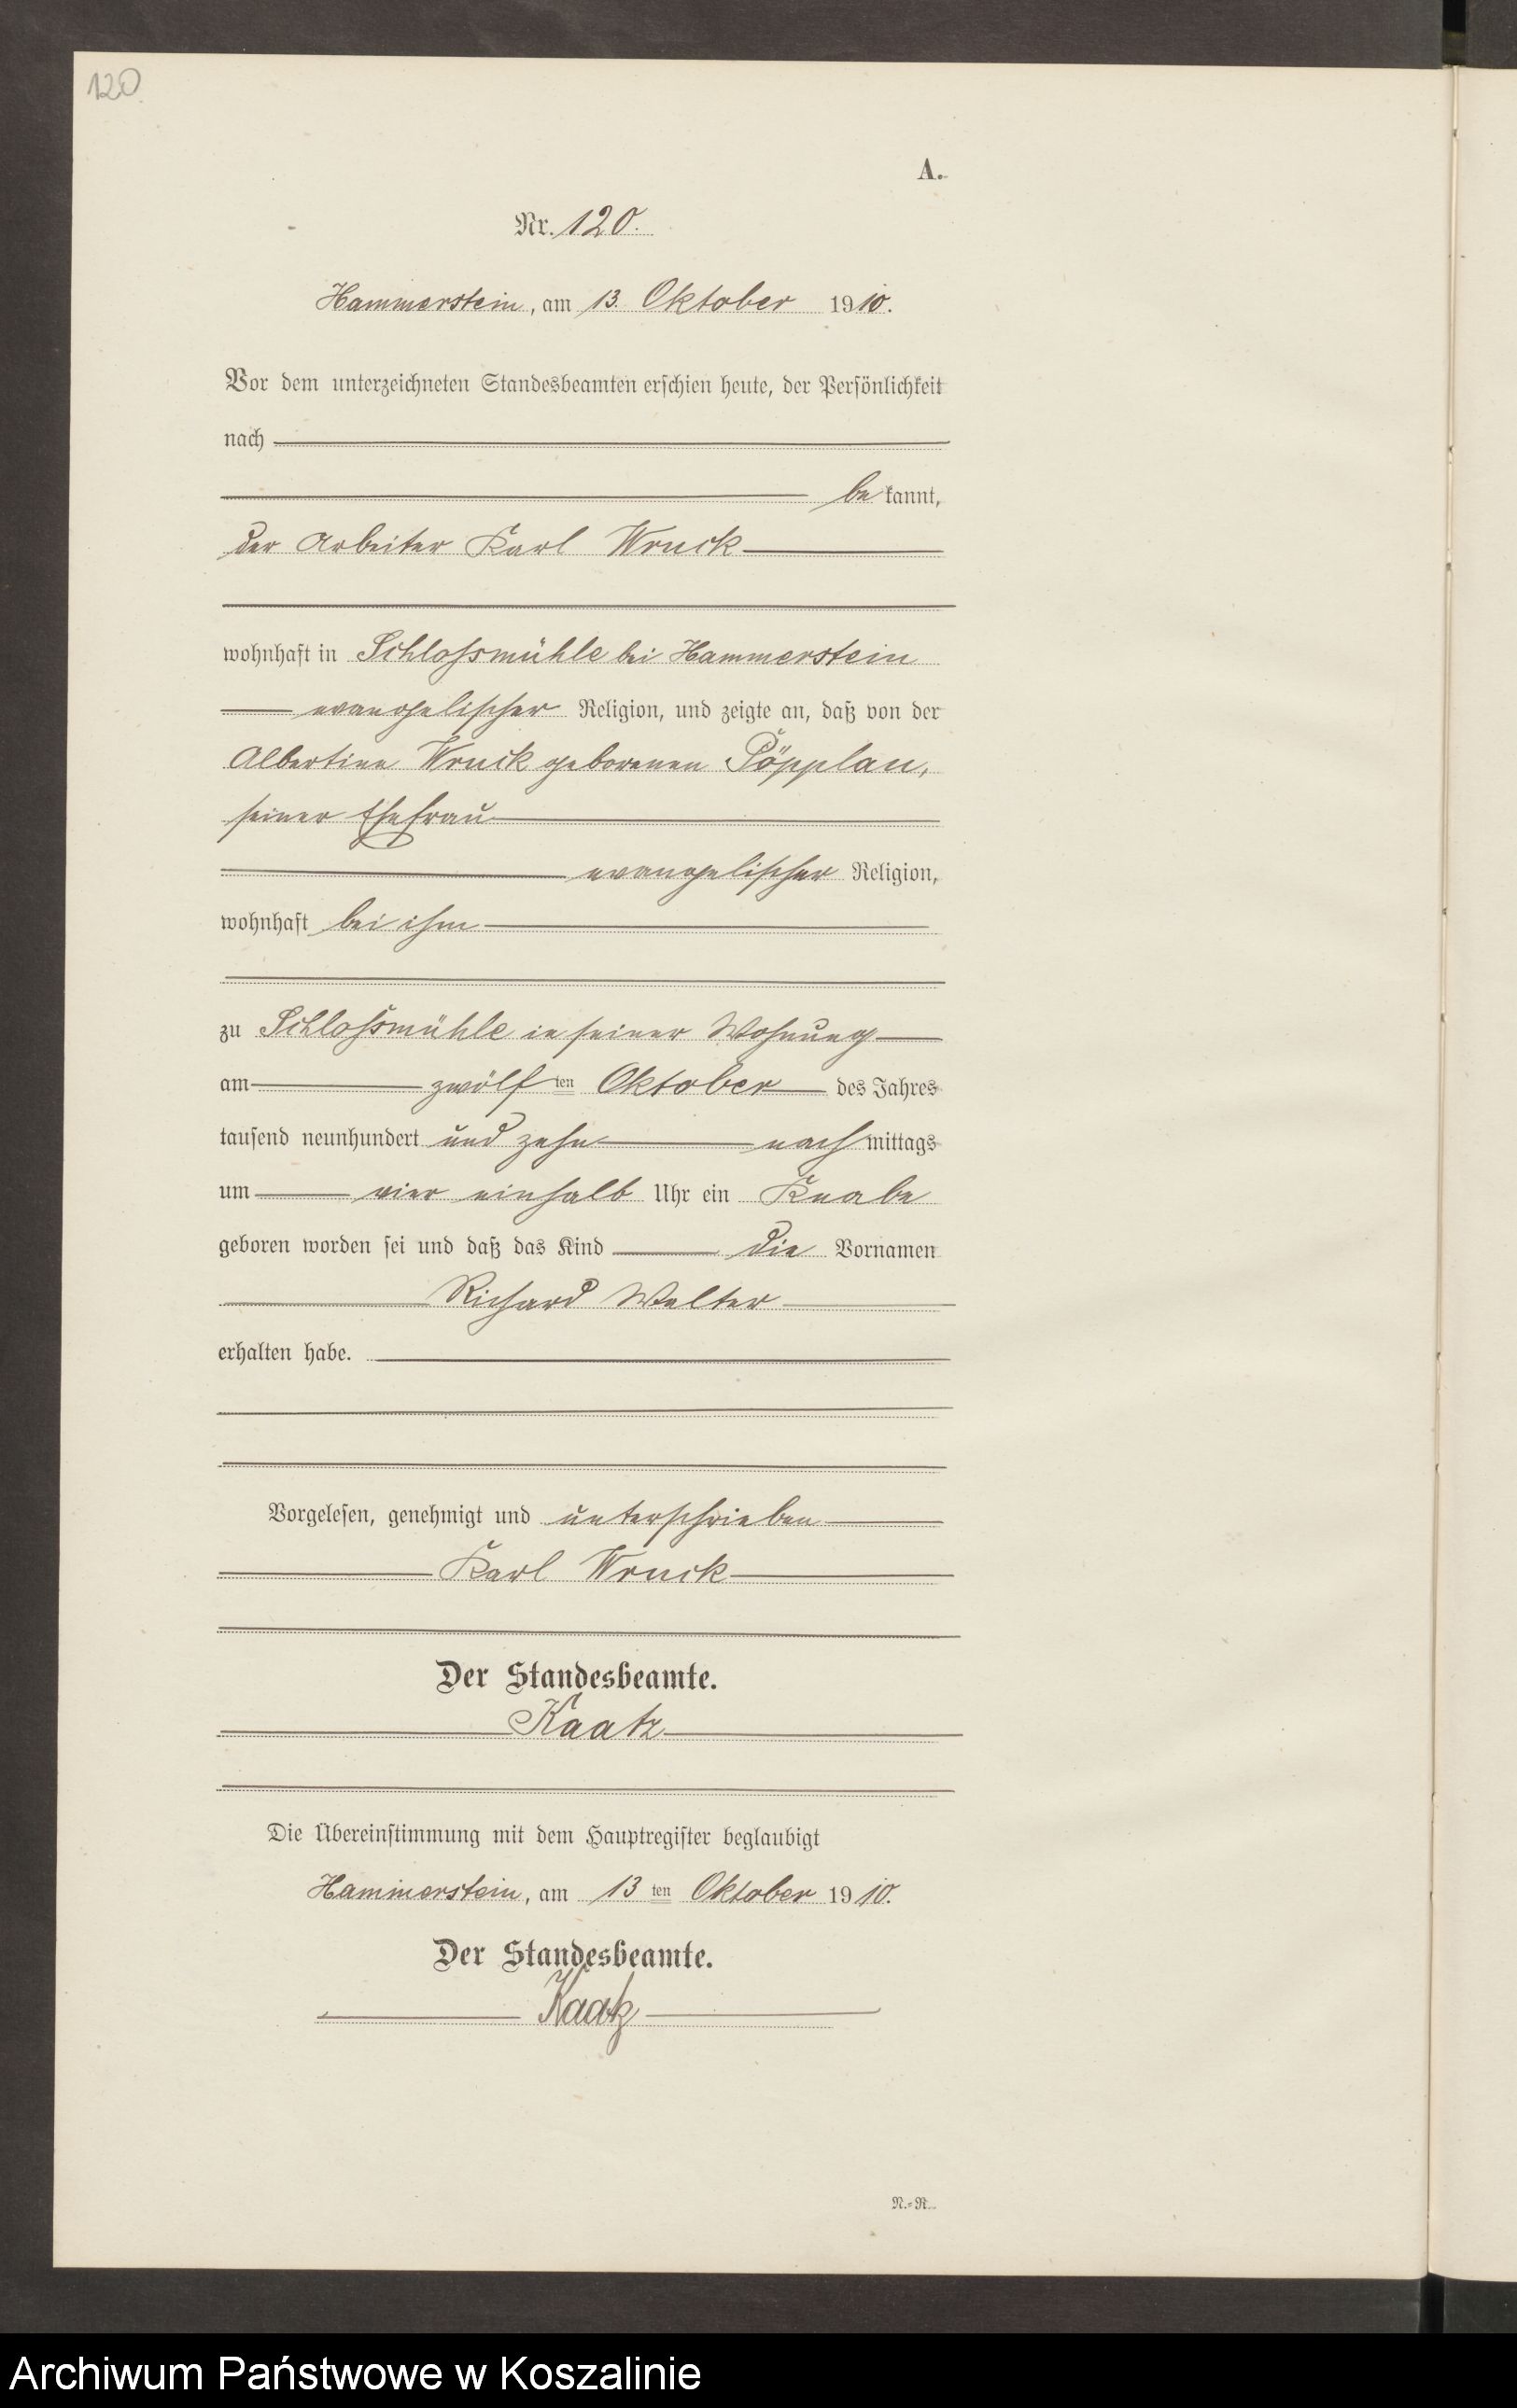 120
A.
Nr. 120.
Hammerstein, am 13. Oktober 1910.
Vor dem unterzeichneten Standesbeamten erschien heute, der Persönlichkeit
nach
be kannt,
der Arbeiter Karl Wruck
wohnhaft in Schloßmühle bei Hammerstein
evangelischer Religion, und zeigte an, daß von der
Albertine Wruck geborenen Pöpplau,
seiner Ehefrau
evangelischer Religion,
wohnhaft bei ihm
zu Schloßmühle in seiner Wohnung
am zwölf ten Oktober des Jahres
tausend neunhundert und zehn nach mittags
um vier einhalb Uhr ein Knabe
geboren worden sei und daß das Kind die Vornamen
Richard Walter
erhalten habe.
Vorgelesen, genehmigt und unterschrieben
Karl Wruck
Der Standesbeamte.
Kaatz
Die Übereinstimmung mit dem Hauptregister beglaubigt
Hammerstein, am 13 ten Oktober 1910.
Der Standesbeamte.
Kaatz
N.=R.
Archiwum Państwowe w Koszalinie